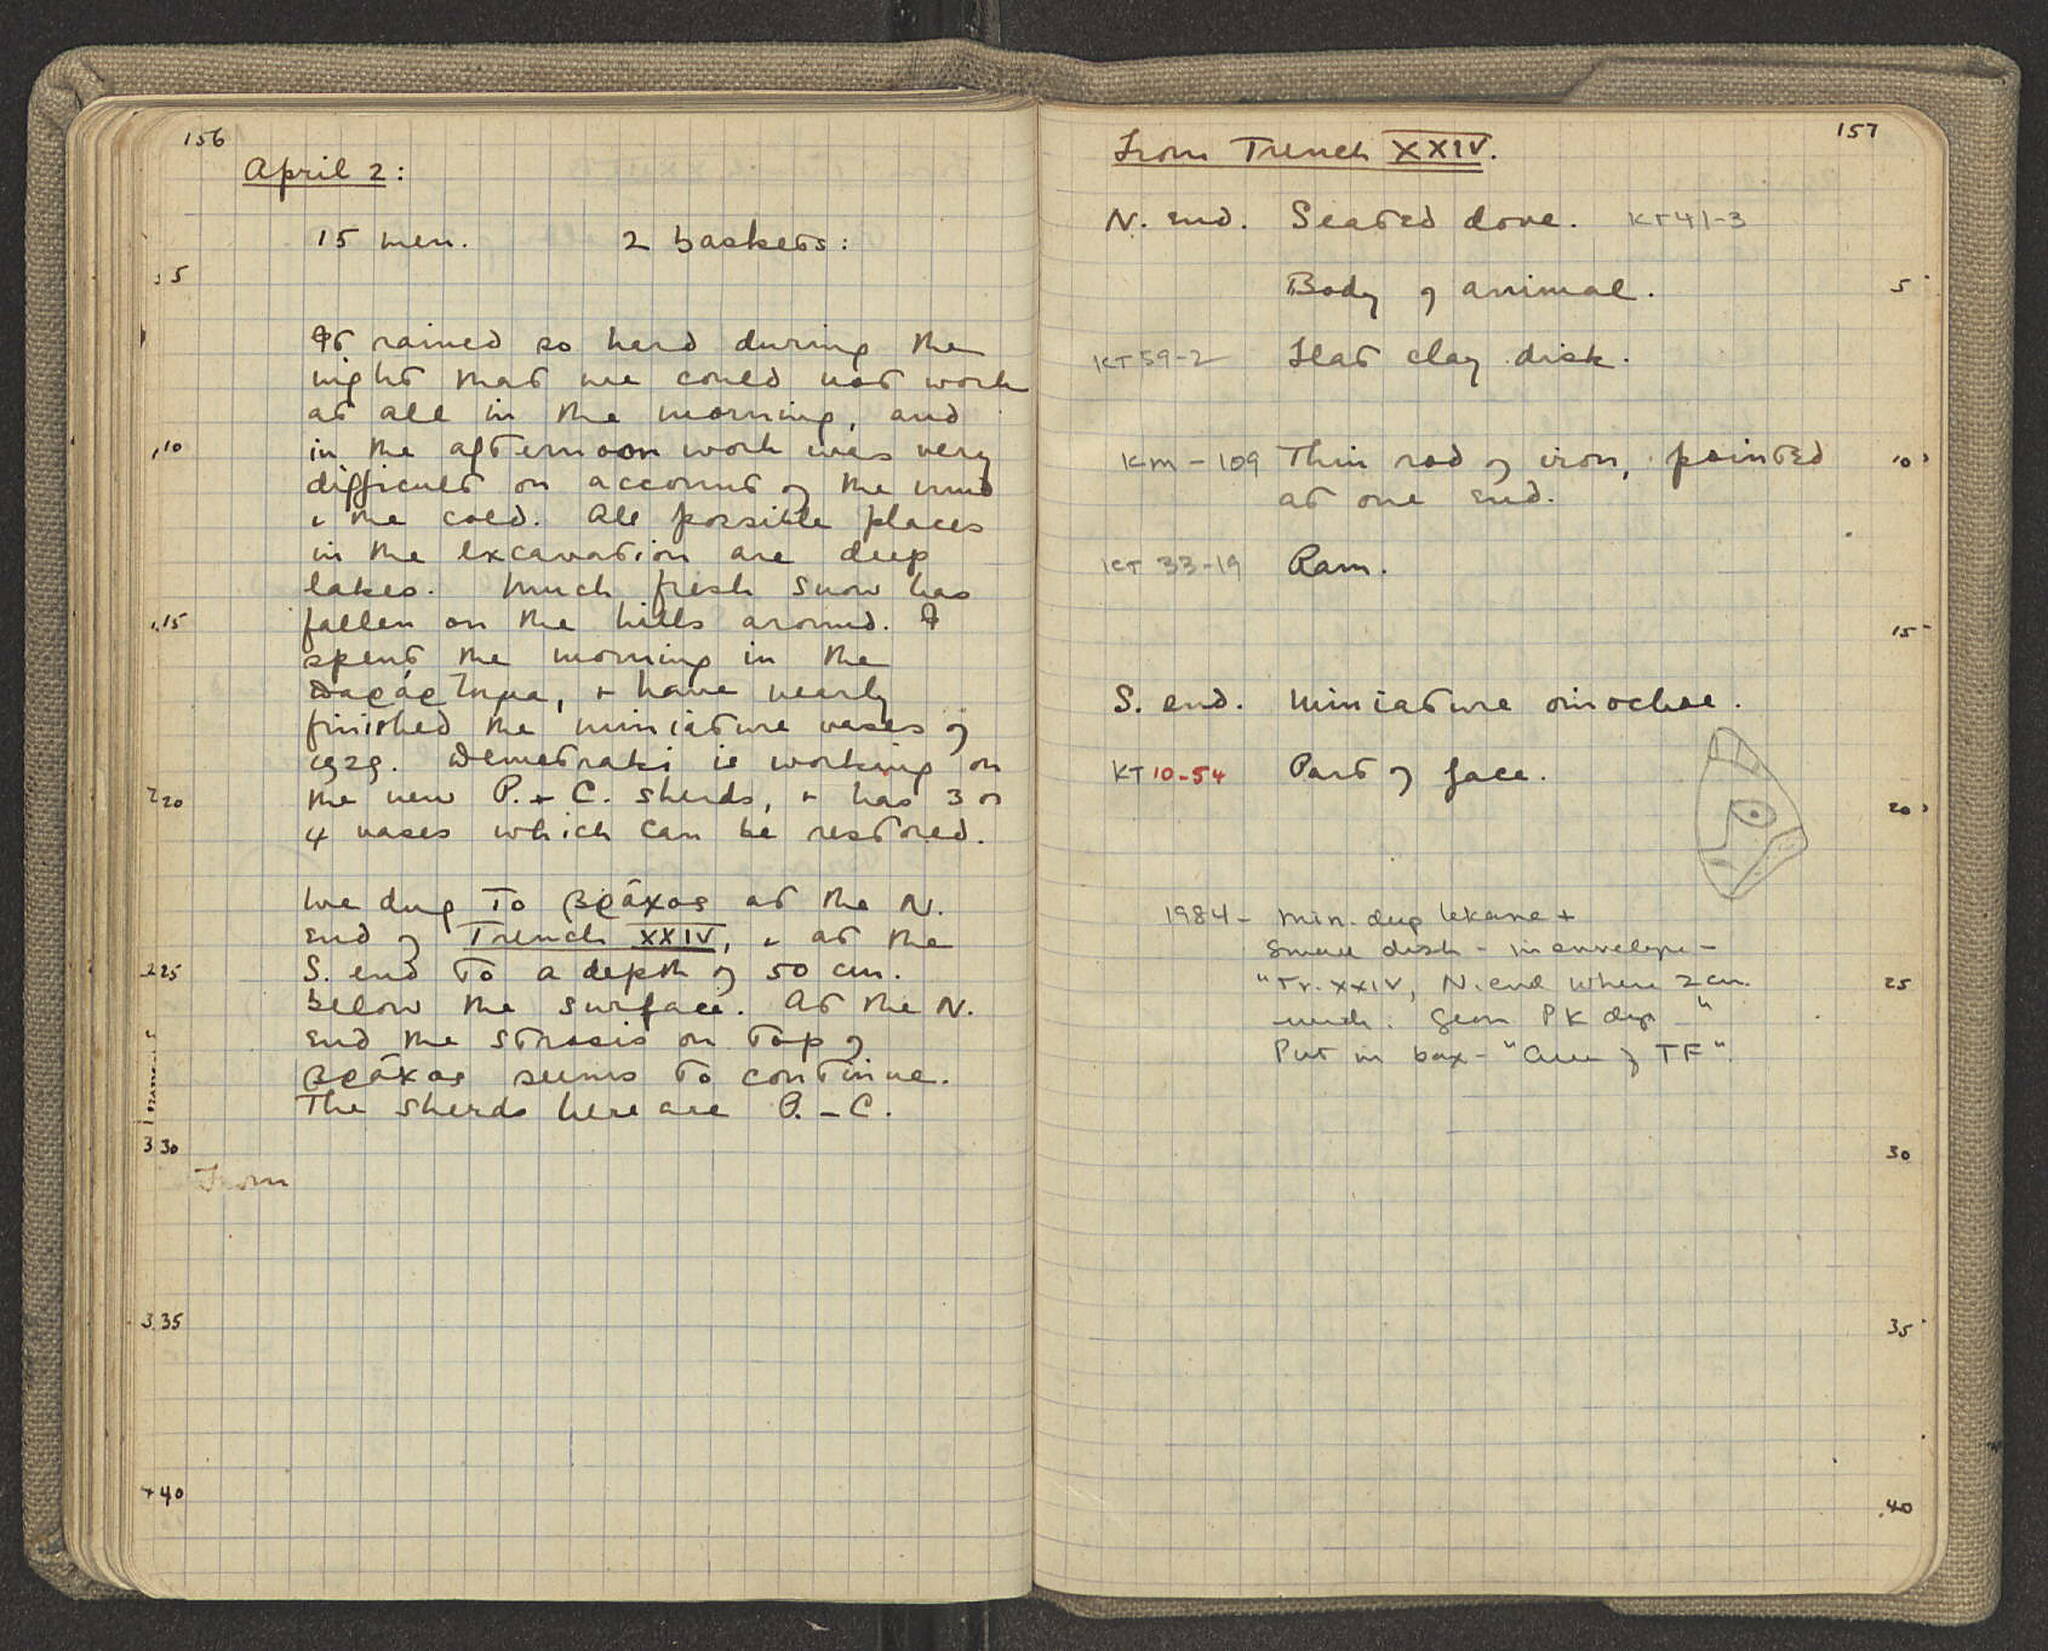 156
April 2:
15 men. 2 baskets:
5
It rained so hard during the
night that we could not work
at all in the morning, and
10
in the afternoon work was very
difficult on account of the mud
& the cold. All possible places
in the excavation are deep
lakes. Much fresh snow has
15
fallen on the hills around. I
spent the morning in the
παράρτημα, & have nearly
finished the miniature vases of
1929. Demetraki is working on
20
the new P. & C. sherds, & has 3 or
4 vases which can be restored.
We dug to βράχος at the N.
end of Trench XXIV, & at the
25
S. end to a depth of 50 cm.
below the surface. At the N.
end the strosis on top of
βράχος seems to continue.
The sherds here are P. - C.
30
From
35
40
157
From Trench XXIV.
N. end. Seated dove. KT41-3
Body of animal.
5
KT59-2 Flat clay disk.
KM-109 Thin rod of iron, pointed
10
at one end.
KT 33-19 Ram.
15
S. end. Miniature oinochoe.
KT 10-54 Part of face.
20
1984 - Min. deep lekane +
small dish - in envelope -
"Tr. XXIV, N. end where 2 cm.
25
Geom PK dep - "
Put in box - " of TF".
30
35
40